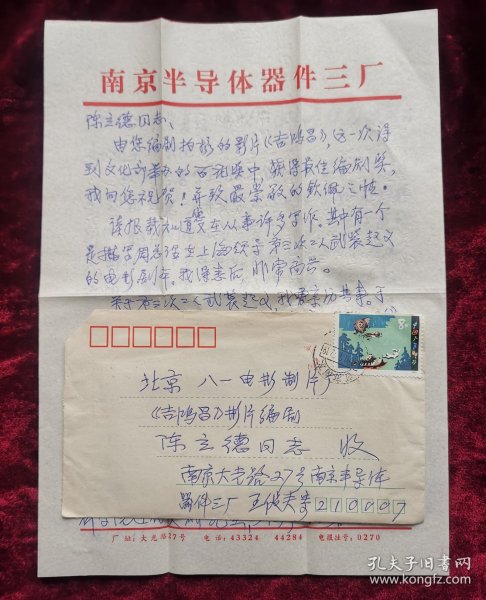 南京半导体器件三厂
陈立德同志、
由您编剧拍摄的影片《吉鸿昌》，这一次得
到文化部举办的百花奖中，获得最佳编剧奖，
我向您祝贺！并致最崇敬的钦佩之忱。
读报载知道您又在从事许多写作。其中有一个
是描写周总理在上海领导第三次工人武装起义
的电影剧本。我得悉后，非常高兴。
关于第三次工人武装起义，我曾亲历其事。于
8分
中国人民邮政
北京 八一电影制片厂
《吉鸿昌》影片编剧
陈立德同志 收
南京大光路27号南京半导体
器件三厂 王俊夫寄
210007
厂址：大光路27号 电话：43324 44284 电报挂号：0270
孔夫子旧书网
www.kongfz.com